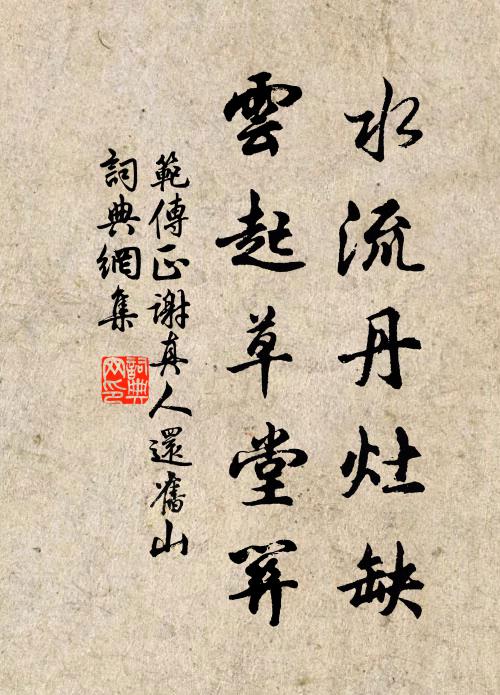 水流丹灶缺
雲起草堂開
範傳正謝真人還舊山
詞典網集
詞典網印